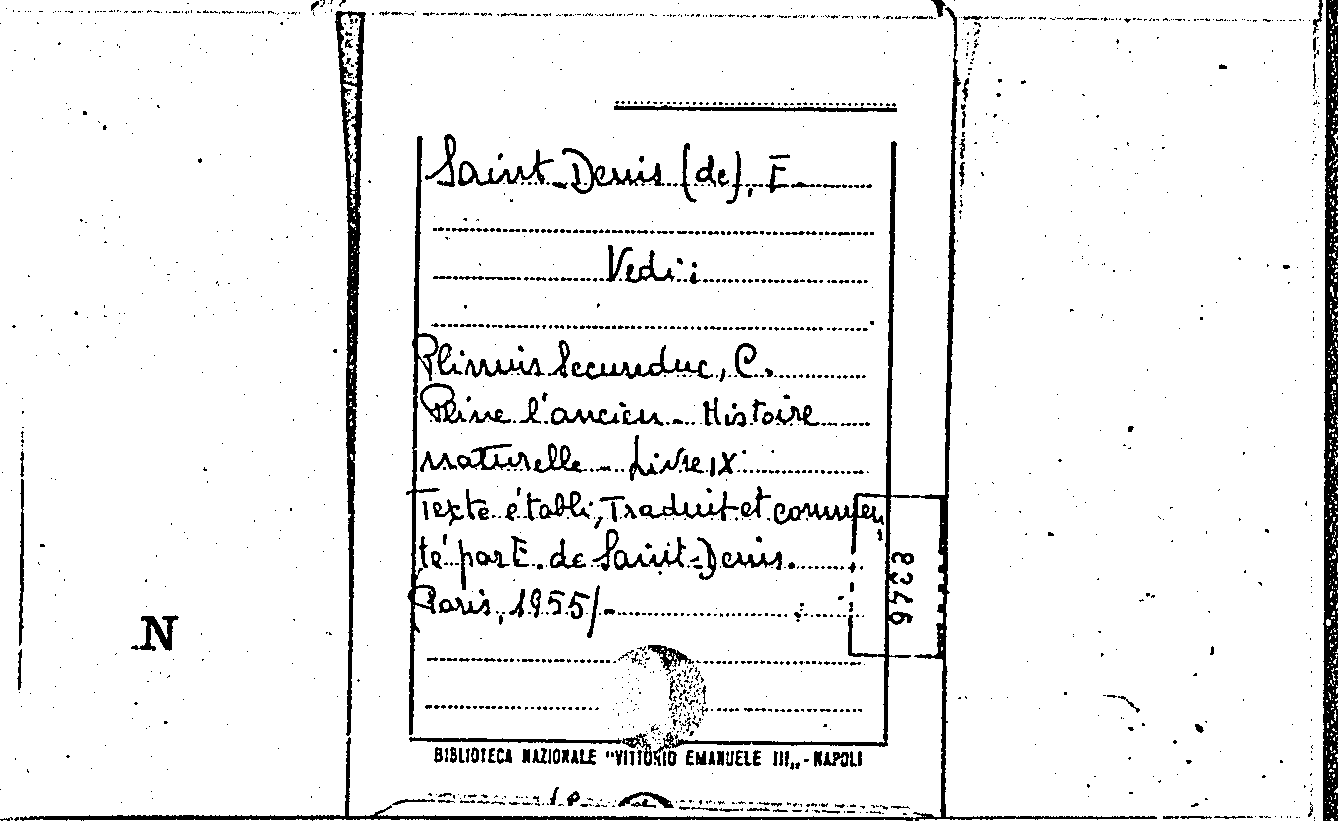 Saint-Denis (de), E.
Vedi:
Plinius Secundus, C.
Pline l'ancien - Histoire
naturelle - Livre IX
Texte établi, Traduit et commen
té par E. de Saint-Denis.
Paris, 1955/-
8346
N
BIBLIOTECA NAZIONALE "VITTORIO EMANUELE III„ - NAPOLI